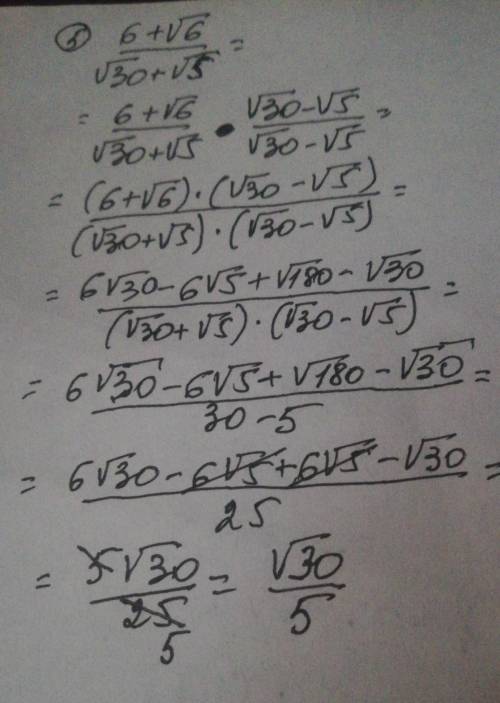 ③ 6+√6 / √30+√5 =
= 6+√6 / √30+√5 • √30-√5 / √30-√5 =
= (6+√6)·(√30-√5) / (√30+√5)·(√30-√5) =
= 6√30-6√5+√180-√30 / (√30+√5)·(√30-√5) =
= 6√30-6√5+√180-√30 / 30-5 =
= 6√30-6√5+6√5-√30 / 25 =
= 5√30 / 25 5 = √30 / 5